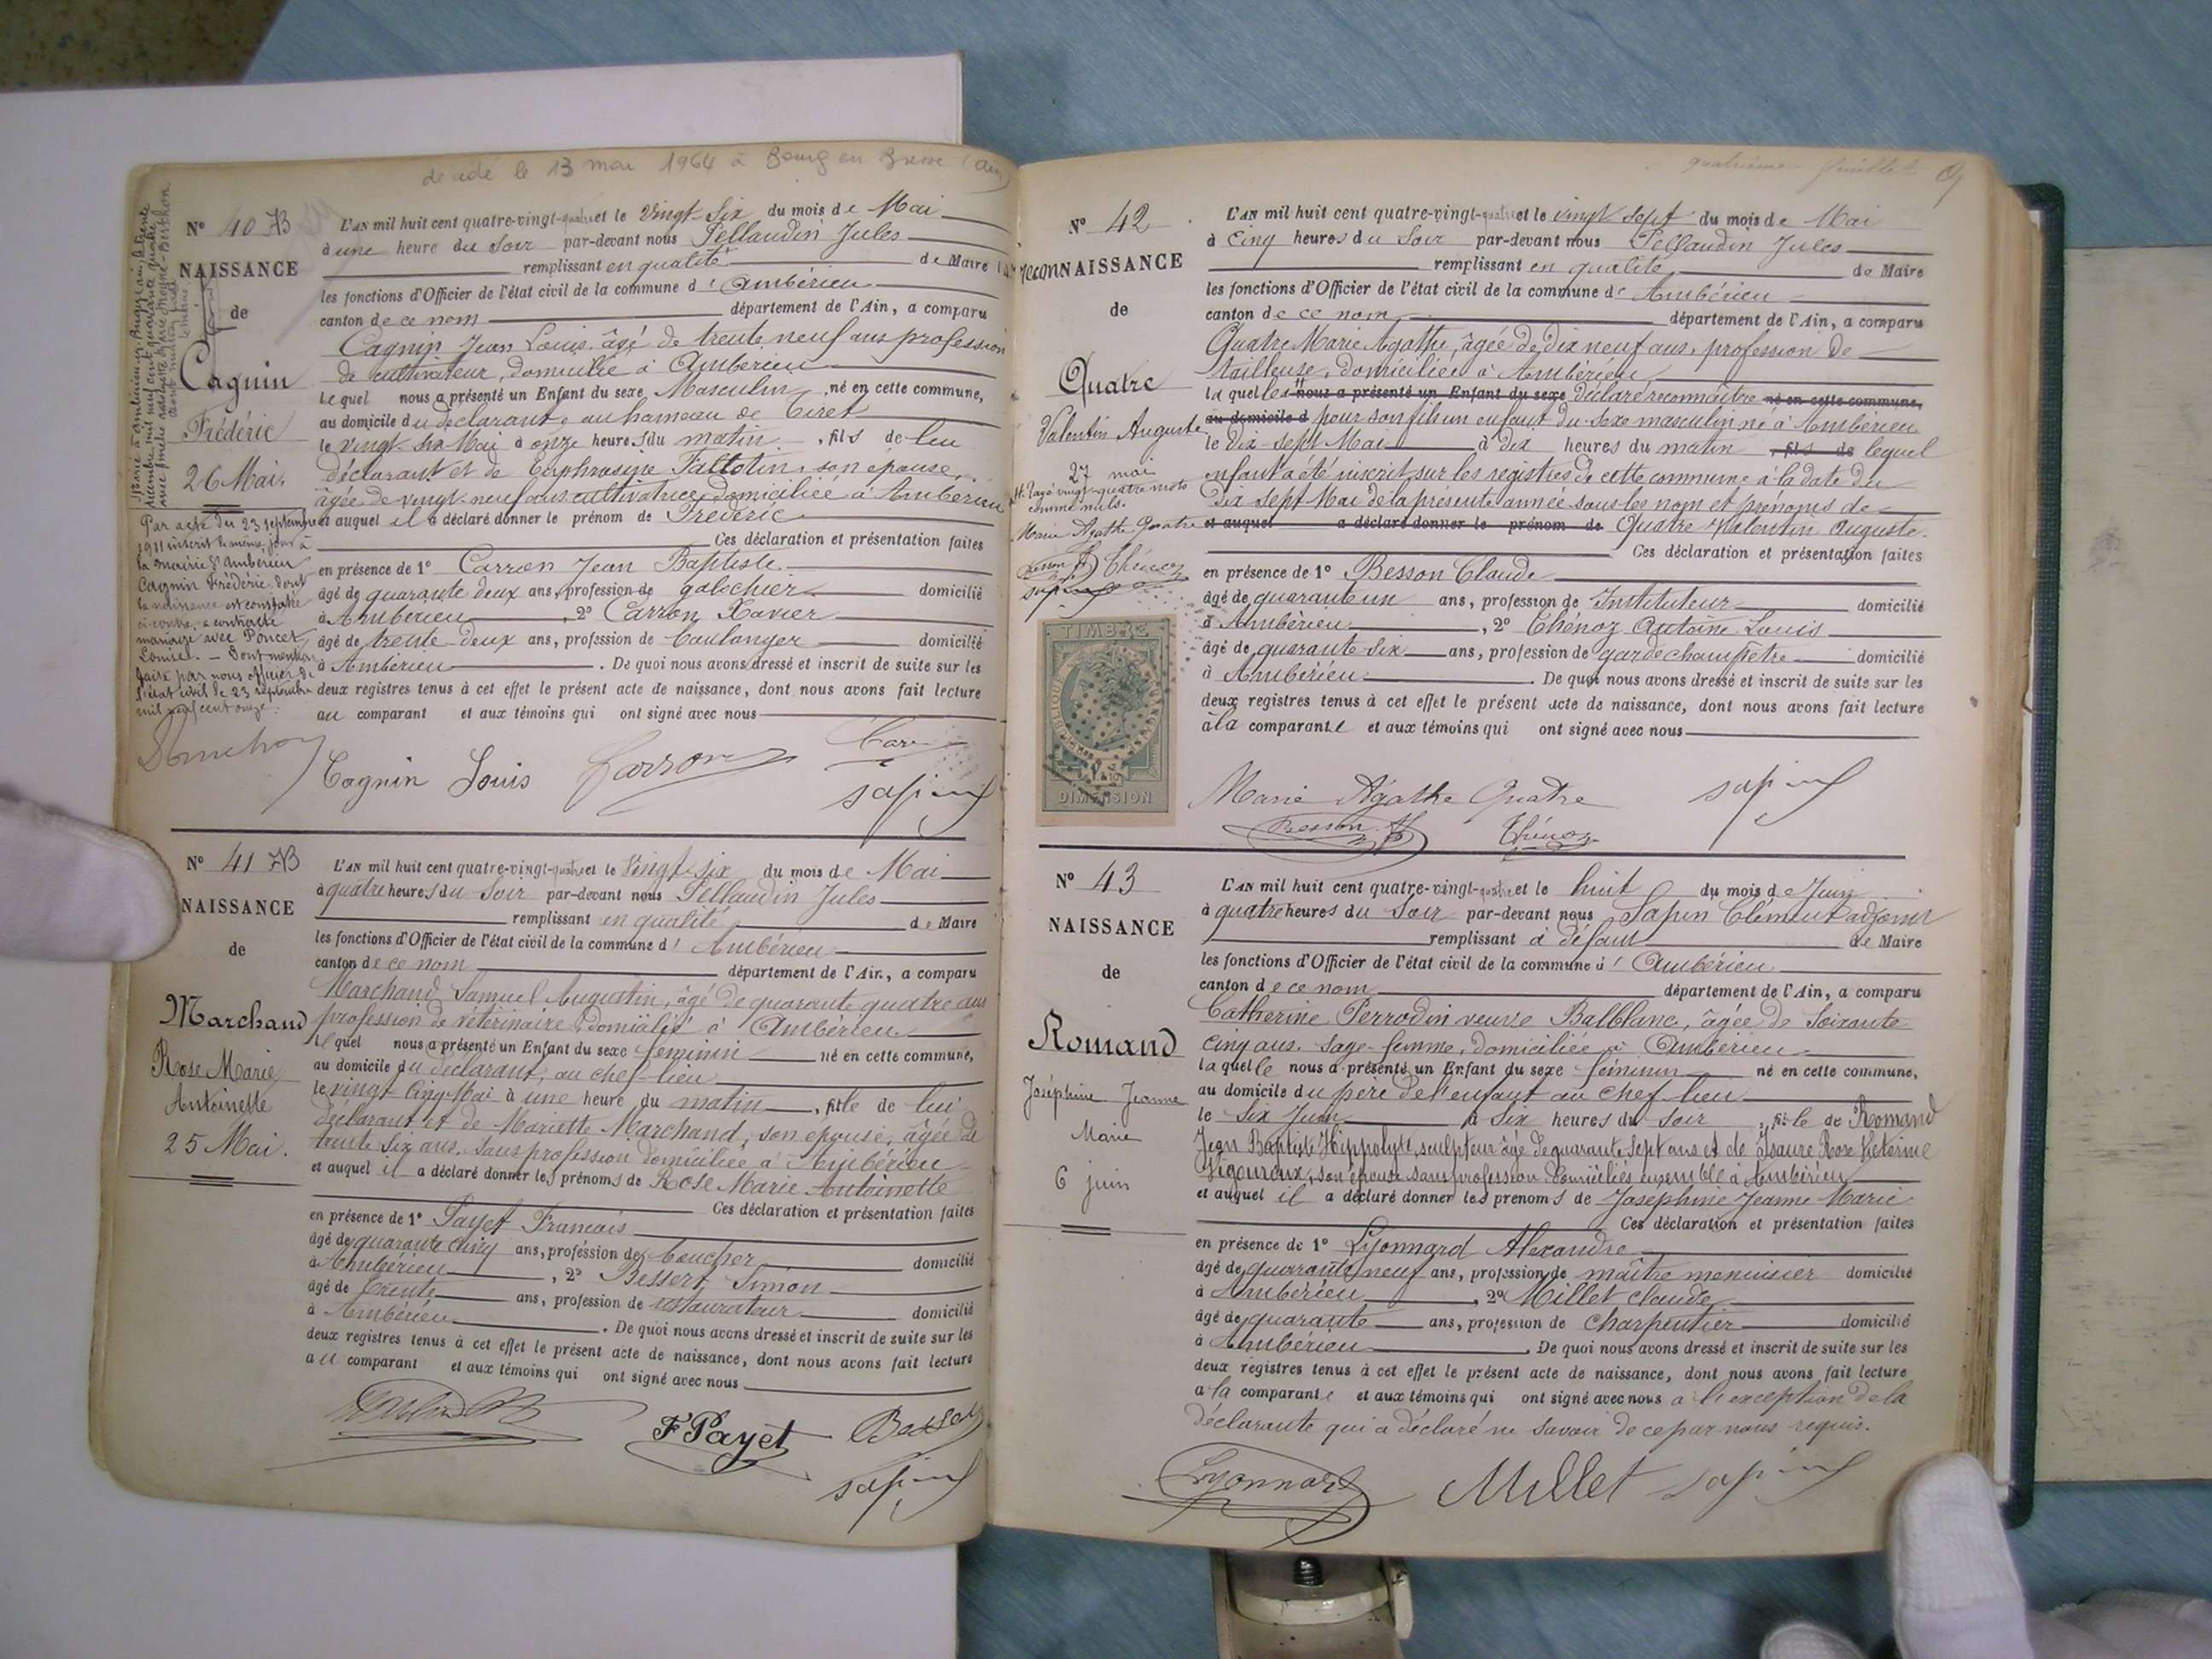 décédé le 13 mai 1964 à Bourg en Bresse (Ain)
N° 40
NAISSANCE
de
Cagnin
Frédéric
26 Mai.
Par acte du 23 septembre
1911 inscrit le même jour à
la mairie d'Ambérieu
Cagnin Frédéric dont
la naissance est constatée
ci-contre, a contracté
mariage avec Poncet
Louise. — Dont mention
faite par nous officier de
l'état civil le 23 septembre
mil neuf cent onze.
L'AN mil huit cent quatre-vingt-quatre et le Vingt-Six du mois de Mai
à une heure du Soir par-devant nous Pellaudin Jules
remplissant en qualité de Maire
les fonctions d'Officier de l'état civil de la commune d'Ambérieu
canton de ce nom département de l'Ain, a comparu
Cagnin Jean Louis âgé de trente neuf ans profession
de cultivateur, domicilié à Ambérieu
lequel nous a présenté un Enfant du sexe Masculin, né en cette commune,
au domicile du déclarant, au hameau de Tiret
le vingt-six Mai à onze heures du matin, fils de lui
déclarant et de Euphrasine Fallotin, son épouse,
âgée de vingt-neuf ans cultivatrice domiciliée à Ambérieu
et auquel il a déclaré donner le prénom de Frédéric
Ces déclaration et présentation faites
en présence de 1° Carron Jean Baptiste
âgé de quarante deux ans, profession de galochier domicilié
à Ambérieu, 2° Carron Xavier
âgé de trente-deux ans, profession de boulanger domicilié
à Ambérieu. De quoi nous avons dressé et inscrit de suite sur les
deux registres tenus à cet effet le présent acte de naissance, dont nous avons fait lecture
au comparant et aux témoins qui ont signé avec nous
Cagnin Louis Carron Carr
sapin
N° 41
NAISSANCE
de
Marchand
Rose Marie
Antoinette
25 Mai.
L'AN mil huit cent quatre-vingt-quatre et le Vingt-six du mois de Mai
à quatre heures du Soir par-devant nous Pellaudin Jules
remplissant en qualité de Maire
les fonctions d'Officier de l'état civil de la commune d'Ambérieu
canton de ce nom département de l'Ain, a comparu
Marchand Samuel Augustin, âgé de quarante quatre ans
profession de vétérinaire domicilié à Ambérieu
lequel nous a présenté un Enfant du sexe féminin né en cette commune,
au domicile du déclarant, au chef-lieu
le vingt-cinq Mai à une heure du matin, fille de lui
déclarant et de Mariette Marchand, son épouse, âgée de
trente six ans, sans profession domiciliée à Ambérieu
et auquel il a déclaré donner les prénoms de Rose Marie Antoinette
Ces déclaration et présentation faites
en présence de 1° Payet Francois
âgé de quarante cinq ans, profession de boucher domicilié
à Ambérieu, 2° Bessert Simon
âgé de trente ans, profession de restaurateur domicilié
à Ambérieu. De quoi nous avons dressé et inscrit de suite sur les
deux registres tenus à cet effet le présent acte de naissance, dont nous avons fait lecture
au comparant et aux témoins qui ont signé avec nous
F Payet
sapin
quatrième feuillet
N° 42
reconNAISSANCE
de
Quatre
Valentin Auguste
27 mai
Rayé vingt-quatre mots
comme nuls.
Marie Agathe Quatre
Besson Thénoz
sapin
TIMBRE
DIMENSION
L'AN mil huit cent quatre-vingt-quatre et le vingt sept du mois de Mai
à cinq heures du Soir par-devant nous Pellaudin Jules
remplissant en qualité de Maire
les fonctions d'Officier de l'état civil de la commune d'Ambérieu
canton de ce nom, département de l'Ain, a comparu
Quatre Marie Agathe, âgée de dix neuf ans, profession de
tailleuse, domiciliée à Ambérieu
laquelle nous a présenté un Enfant du sexe déclaré reconnaître né en cette commune,
au domicile d pour son fils un enfant du sexe masculin né à Ambérieu
le dix-sept Mai à dix heures du matin, fils de lequel
enfant a été inscrit sur les registres de cette commune à la date du
dix sept Mai de la présente année sous les nom et prénoms de
et auquel a déclaré donner le prénom de Quatre Valentin Auguste.
Ces déclaration et présentation faites
en présence de 1° Besson Claude
âgé de quarante un ans, profession de Instituteur domicilié
à Ambérieu, 2° Thénoz Antoine Louis
âgé de quarante-six ans, profession de garde champêtre domicilié
à Ambérieu. De quoi nous avons dressé et inscrit de suite sur les
deux registres tenus à cet effet le présent acte de naissance, dont nous avons fait lecture
à la comparante et aux témoins qui ont signé avec nous
Marie Agathe Quatre sapin
Besson Thénoz
N° 43
NAISSANCE
de
Romand
Joséphine Jeanne
Marie
6 juin
L'AN mil huit cent quatre-vingt-quatre et le huit du mois de Juin
à quatre heures du Soir par-devant nous Sapin Clément adjoint
remplissant à défaut de Maire
les fonctions d'Officier de l'état civil de la commune d'Ambérieu
canton de ce nom département de l'Ain, a comparu
Catherine Perrodin veuve Balblanc, âgée de soixante
cinq ans. sage-femme, domiciliée à Ambérieu
laquelle nous a présenté un Enfant du sexe féminin né en cette commune,
au domicile du père de l'enfant au chef lieu
le Six Juin à six heures du soir, fille de Romand
Jean Baptiste Hippolyte, sculpteur âgé de quarante sept ans et de Isaure Rose Victorine
Vigouroux, son épouse sans profession domiciliés ensemble à Ambérieu
et auquel il a déclaré donner les prénoms de Joséphine Jeanne Marie
Ces déclaration et présentation faites
en présence de 1° Lyonnard Alexandre
âgé de quarante neuf ans, profession de maître menuisier domicilié
à Ambérieu, 2° Millet Claude
âgé de quarante ans, profession de charpentier domicilié
à Ambérieu. De quoi nous avons dressé et inscrit de suite sur les
deux registres tenus à cet effet le présent acte de naissance, dont nous avons fait lecture
à la comparante et aux témoins qui ont signé avec nous à l'exception de la
déclarante qui a déclaré ne savoir de ce par nous requis.
Lyonnard Millet sapin